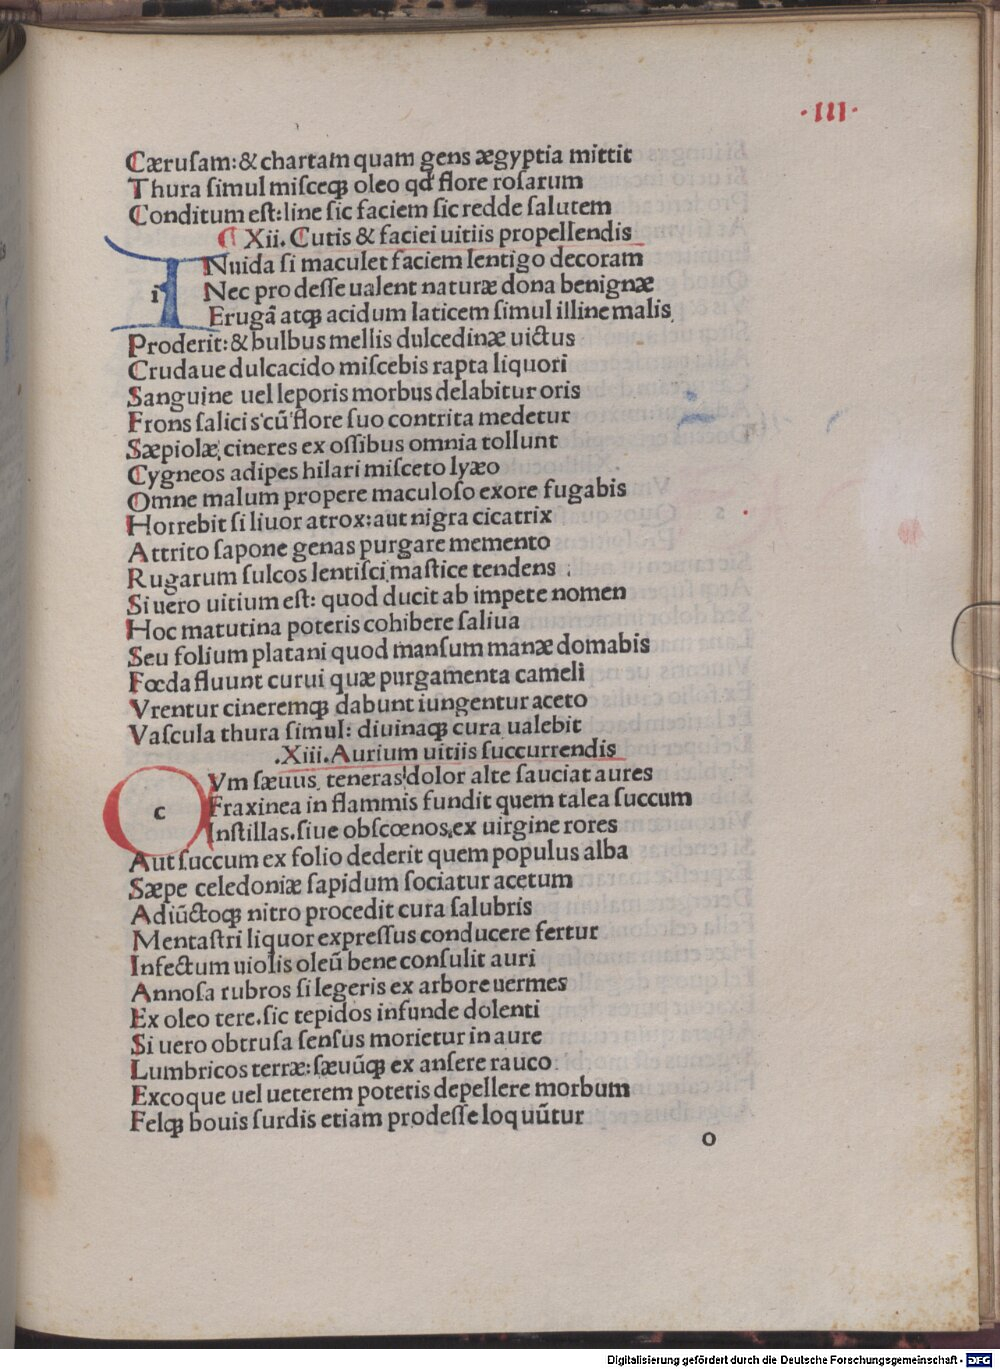 ·III·
Cærusam:& chartam quam gens ægyptia mittit
Thura simul misceqꝫ oleo qđ flore rosarum
Conditum est:line sic faciem sic redde salutem
¶ Xii. Cutis & faciei uitiis propellendis
i
INuida si maculet faciem lentigo decoram
Nec prodesse ualent naturæ dona benignæ
Erugā atqꝫ acidum laticem simul illine malis
Proderit:& bulbus mellis dulcedinæ uictus
Crudaue dulcacido miscebis rapta liquori
Sanguine uel leporis morbus delabitur oris
Frons salicis cū flore suo contrita medetur
Sæpiolæ cineres ex ossibus omnia tollunt
Cygneos adipes hilari misceto lyæo
Omne malum propere maculoso exore fugabis
Horrebit si liuor atrox:aut nigra cicatrix
Attrito sapone genas purgare memento
Rugarum sulcos lentisci mastice tendens
Si uero uitium est: quod ducit ab impete nomen
Hoc matutina poteris cohibere saliua
Seu folium platani quod mansum manæ domabis
Fœda fluunt curui quæ purgamenta cameli
Vrentur cineremqꝫ dabunt iungentur aceto
Vascula thura simul: diuinaqꝫ cura ualebit
.Xiii.Aurium uitiis succurrendis
c
CVm sæuus teneras dolor alte sauciat aures
Fraxinea in flammis fundit quem talea succum
Instillas.siue obscœnos ex uirgine rores
Aut succum ex folio dederit quem populus alba
Sæpe celedoniæ sapidum sociatur acetum
Adiūctoqꝫ nitro procedit cura salubris
Mentastri liquor expressus conducere fertur
Infectum uiolis oleū bene consulit auri
Annosa rubros si legeris ex arbore uermes
Ex oleo tere.sic tepidos infunde dolenti
Si uero obtrusa sensus morietur in aure
Lumbricos terræ:sæuūqꝫ ex ansere rauco
Excoque uel ueterem poteris depellere morbum
Felqꝫ bouis surdis etiam prodesse loquūtur
o
Digitalisierung gefördert durch die Deutsche Forschungsgemeinschaft - DFG